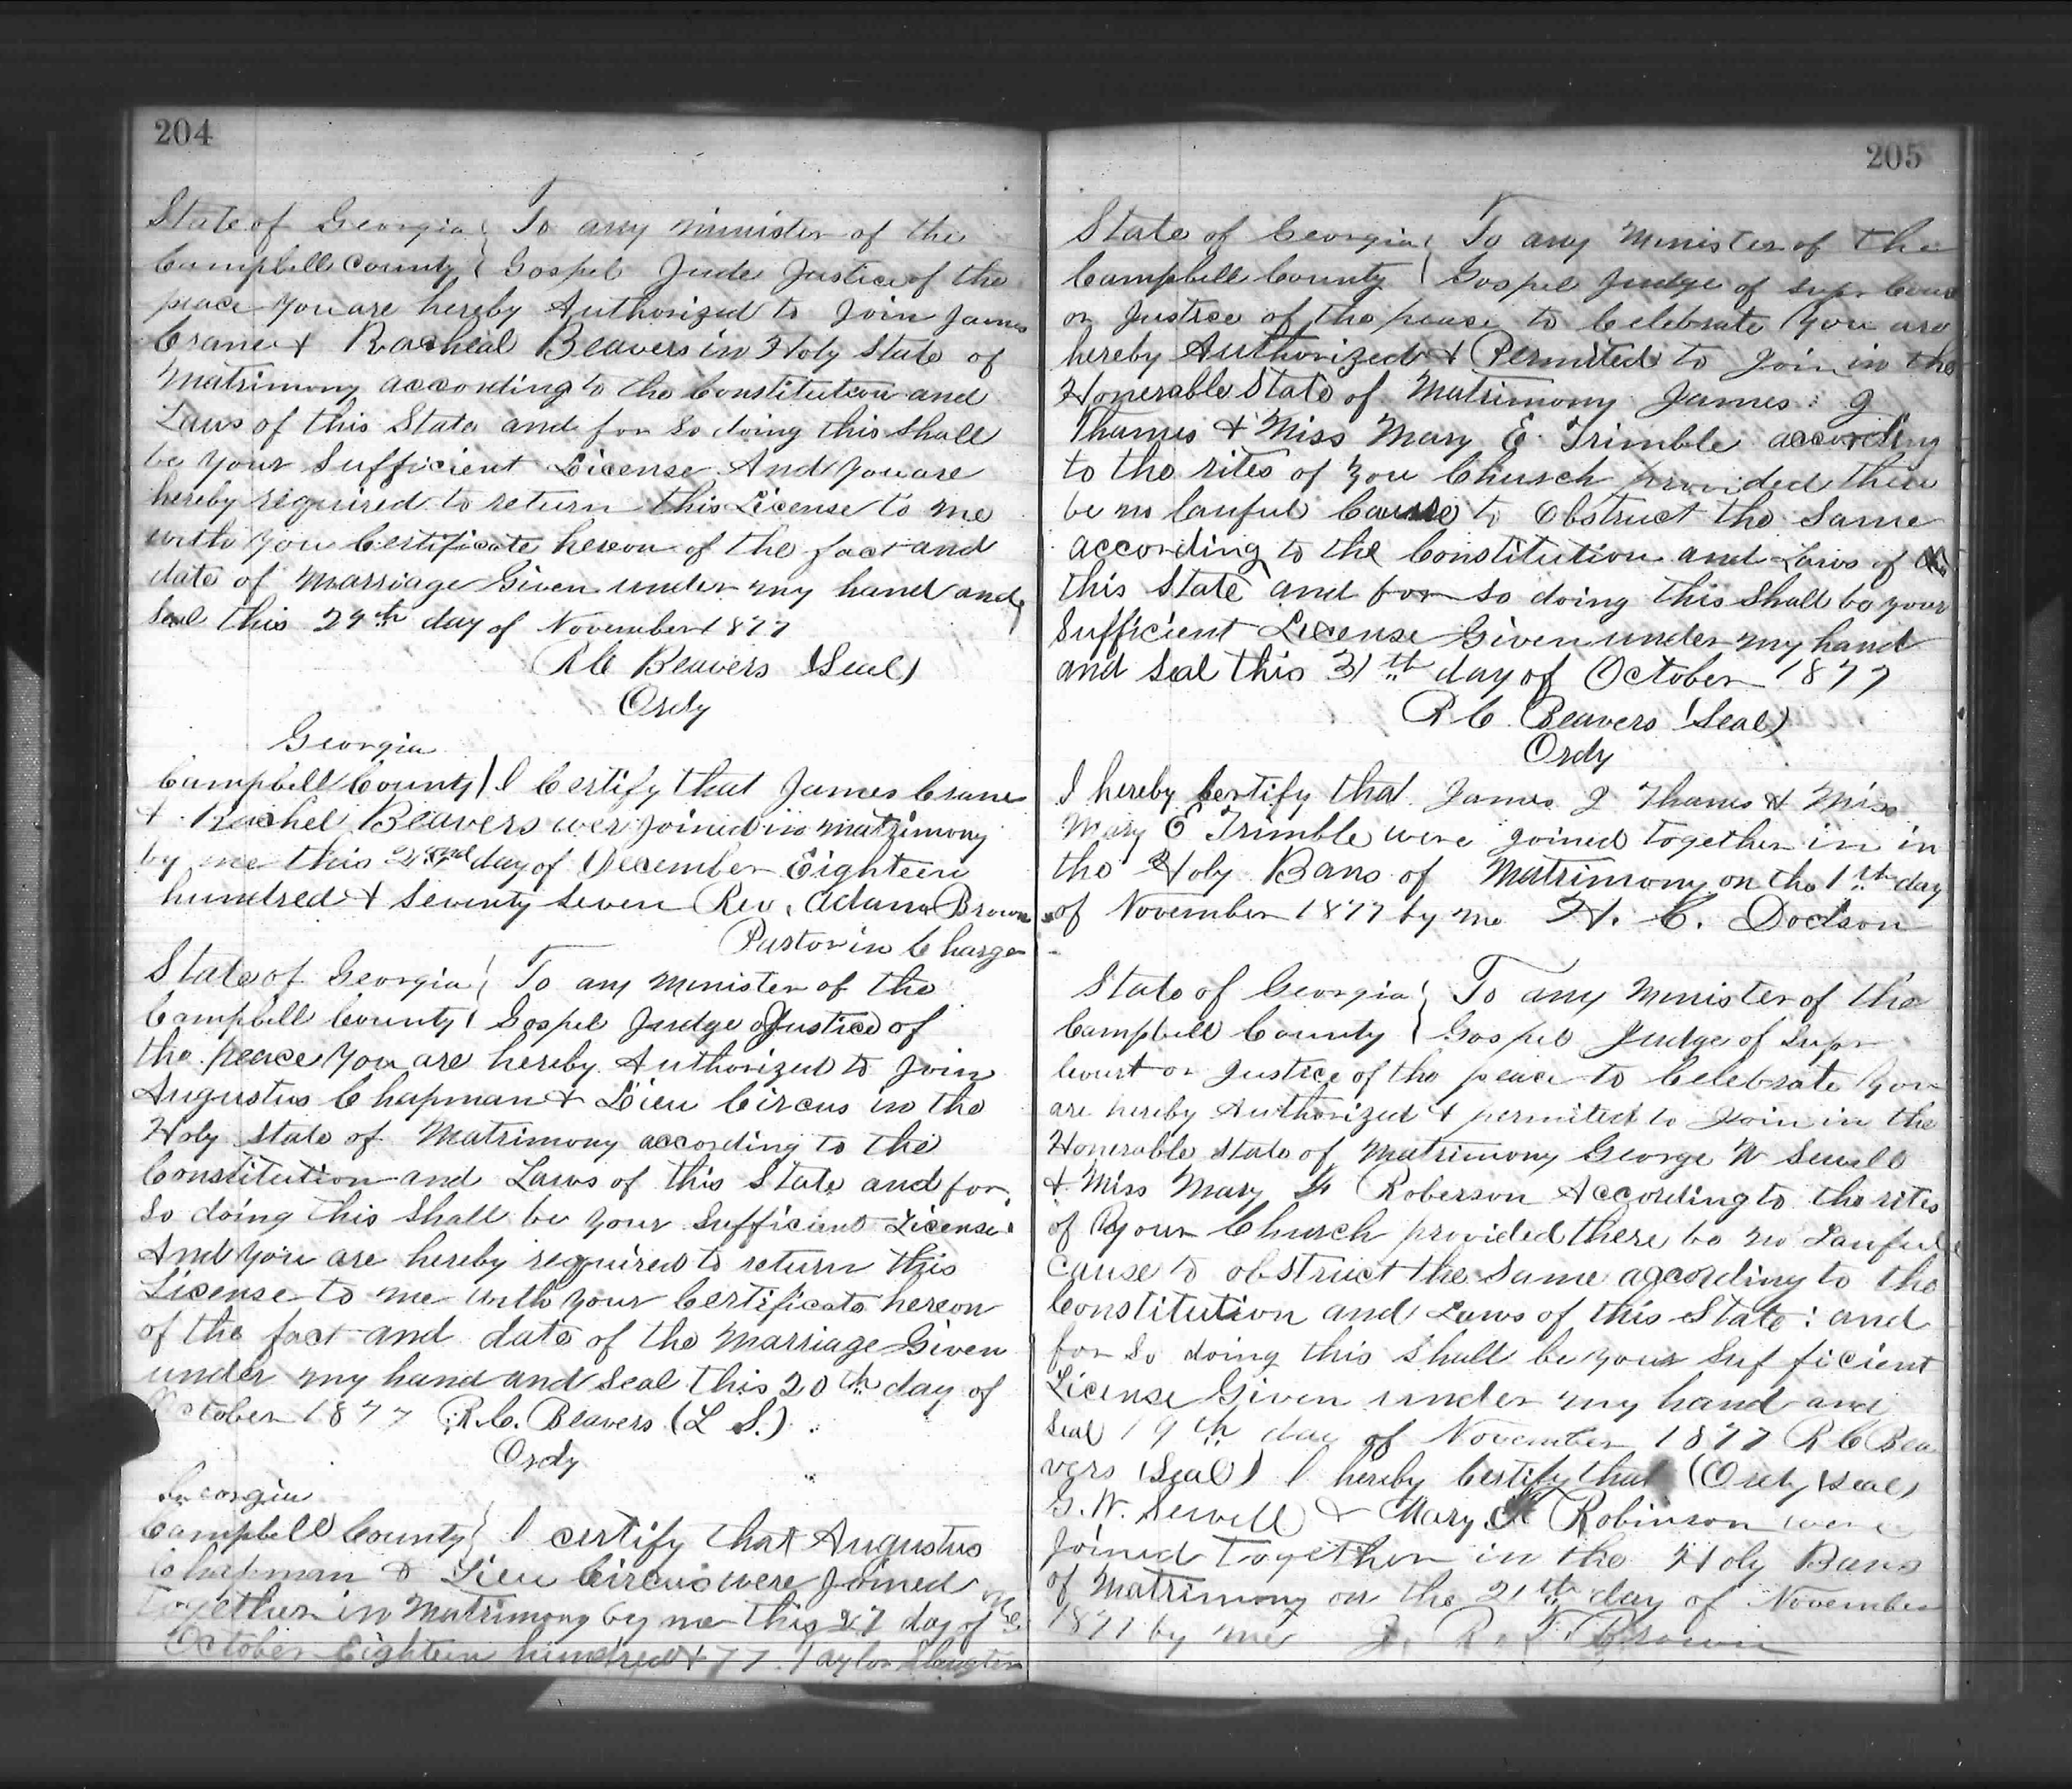 204
State of Georgia } To any minister of the
Campbell County } Gospel Jude Justice of the
peace you are hereby Authorized to Join James
Crane & Racheal Beavers in Holy State of
Matrimony according to the Constitution and
Laws of this State and for So doing this Shall
be your Sufficient License And you are
hereby required to return this License to me
with you Certificate hereon of the fact and
date of Marriage Given under my hand and
Seal this 29th day of November 1877
R C Beavers (Seal)
Ordy
Georgia
Campbell County } I Certify that James Crane
& Rachel Beavers wer Joined in matrimony
by me this 2nd day of December Eighteen
hundred & Seventy Seven Rev. Adam Brown
Pastor in Charge
State of Georgia } To any Minister of the
Campbell County } Gospel Judge of Justice of
the peace you are hereby Authorized to Join
Augustus Chapman & Lieu Circus in the
Holy State of Matrimony according to the
Constitution and Laws of this State and for
So doing this Shall be your Sufficient License
And you are hereby required to return this
License to me with your Certificate hereon
of the fact and date of the Marriage Given
under my hand and Seal this 20th day of
October 1877 R. C. Beavers (L S.)
Ordy
Georgia
Campbell County } I certify that Augustus
Chapman & Lieu Circus were Joined
together in Matrimony by me this 27 day of
October Eighteen hundred & 77. Taylor
205
State of Georgia } To any Minister of the
Campbell County } Gospel Judge of Supr Cour
or Justice of the peace to Celebrate you are
hereby Authorized & Permited to Join in the
Honerable State of Matrimony James J
Thames & Miss Mary E. Trimble according
to the rites of you Church provided there
be no lawful Cause to Obstruct the Same
according to the Constitution and Laws of
this State and for So doing this Shall be your
Sufficient License Given under my hand
and Seal this 31th day of October 1877
R C Beavers (Seal)
Ordy
I hereby Certify that James J Thames & Miss
Mary E Trimble were Joined together in in
the Holy Bans of Matrimony on the 1th day
of November 1877 by me H. C. Dodson
State of Georgia } To any Minister of the
Campbell County } Gospel Judge of Supr
Court or Justice of the peace to Celebrate you
are hereby Authorized & permited to Join in the
Honerable State of Matrimony George W Sewell
& Miss Mary Roberson According to the rites
of your Church provided there be no Lawful
Cause to obstruct the Same according to the
Constitution and Laws of this State : and
for So doing this Shall be your Suf ficient
License Given under my hand and
Seal 19th day of November 1877 R C Bea
vers (Seal) I hereby Certify that (Ordy Seal)
G. W. Sewell & Mary Robinson were
Joined Together in the Holy Bans
of Matrimony on the 21th day of November
1877 by me J. R. T. Brown